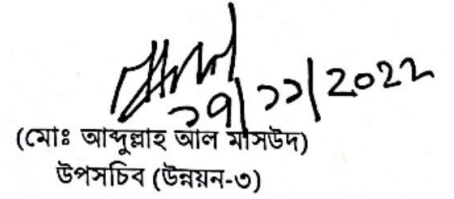 ১৭/১১/২০২২
(মোঃ আব্দুল্লাহ আল মাসউদ)
উপসচিব (উন্নয়ন-৩)